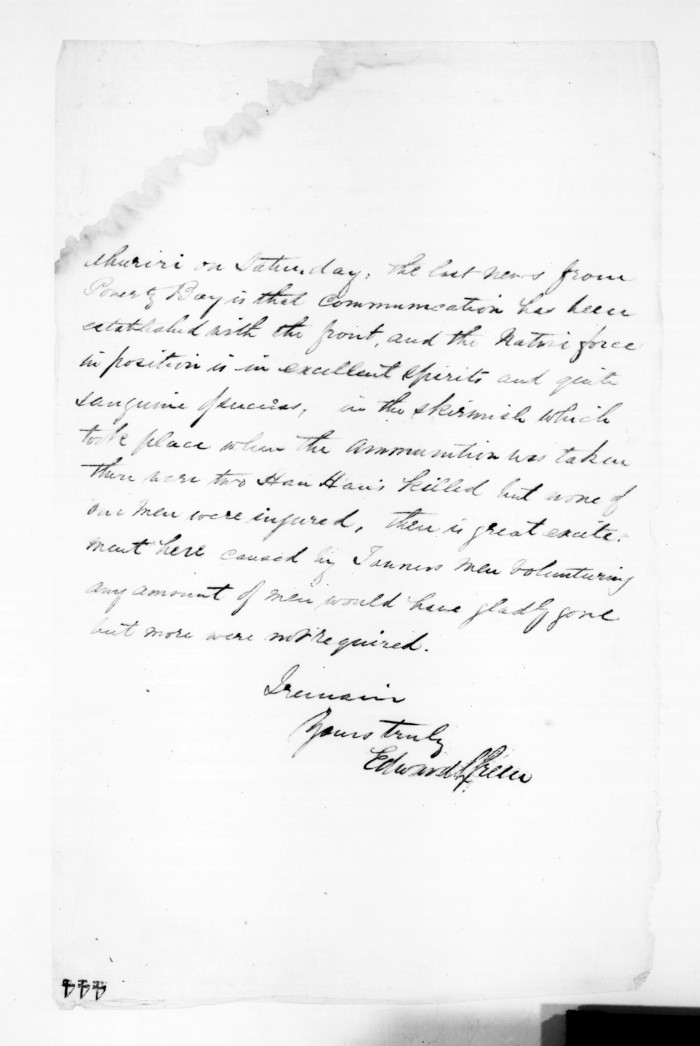 Ahuriri on Saturday, the last news from
Poverty Bay is that communication has been
established with the front, and the Native force
in position is in excellent spirits and quite
sanguine of success, in the skirmish which
took place when the ammunition was taken
there were two Hau Hau's killed but none of
our men were injured, there is great excite-
ment here caused by men volunturing
any amount of men would have gladly gone
but more were not required.
I remain
Yours truly
Edward Green